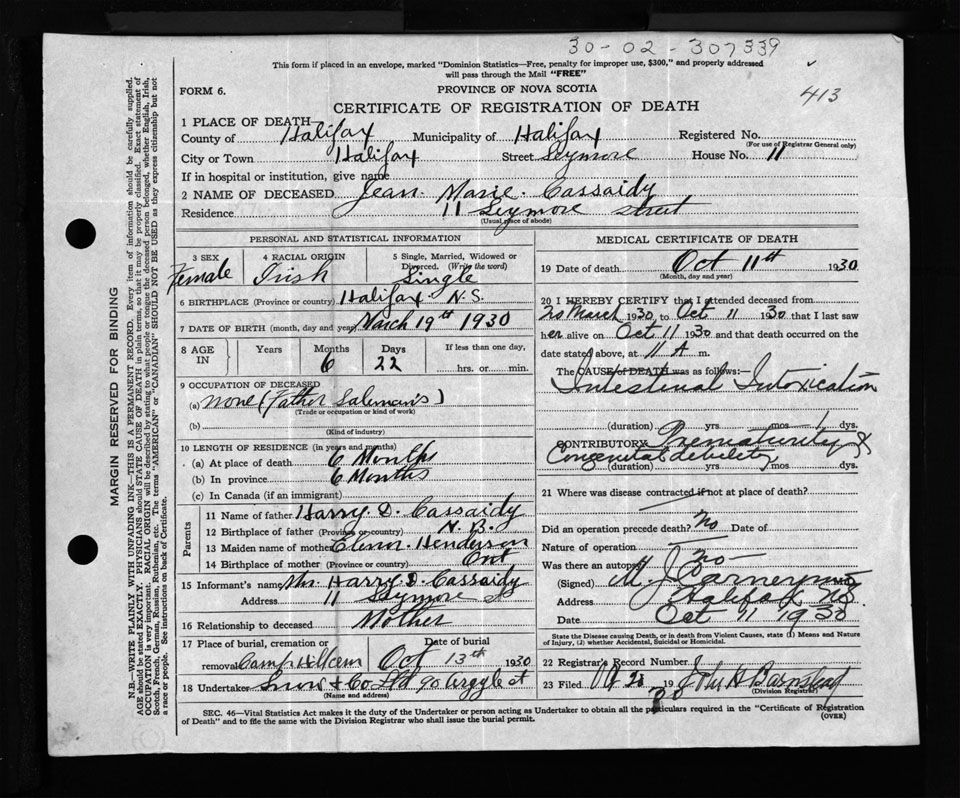 30-02-307339
This form if placed in an envelope, marked "Dominion Statistics—Free, penalty for improper use, $300," and properly addressed
will pass through the Mail "FREE"
FORM 6.
PROVINCE OF NOVA SCOTIA
413
CERTIFICATE OF REGISTRATION OF DEATH
1 PLACE OF DEATH
County of Halifax Municipality of Halifax Registered No.
(For use of Registrar General only)
City or Town Halifax Street Seymore House No. 11
If in hospital or institution, give name
2 NAME OF DECEASED Jean Marie Cassaidy
Residence 11 Seymore street
(Usual place of abode)
PERSONAL AND STATISTICAL INFORMATION
3 SEX 4 RACIAL ORIGIN 5 Single, Married, Widowed or
Divorced. (Write the word)
Female Irish Single
6 BIRTHPLACE (Province or country) Halifax N.S.
7 DATE OF BIRTH (month, day and year) March 19th 1930
8 AGE IN Years Months Days If less than one day,
6 22 hrs. or min.
9 OCCUPATION OF DECEASED
(a) none (father Saleman's)
(Trade or occupation or kind of work)
(b)
(Kind of industry)
10 LENGTH OF RESIDENCE (in years and months)
(a) At place of death 6 Months
(b) In province 6 Months
(c) In Canada (if an immigrant)
Parents
11 Name of father Harry D. Cassaidy
12 Birthplace of father (Province or country) N.B.
13 Maiden name of mother Elenor Henderson
14 Birthplace of mother (Province or country) Ont
15 Informant's name Mrs Harry D. Cassaidy
Address 11 Seymore St
16 Relationship to deceased Mother
17 Place of burial, cremation or Date of burial
removal Camp Hill Cem Oct 13th 1930
18 Undertaker Snow & Co Ltd 90 Argyle st
(Name and address)
MEDICAL CERTIFICATE OF DEATH
19 Date of death Oct 11th 1930
(Month, day and year)
20 I HEREBY CERTIFY that I attended deceased from
20 March 1930 to Oct 11 1930 that I last saw
her alive on Oct 11 1930 and that death occurred on the
date stated above, at 11 A m.
The CAUSE of DEATH was as follows:—
Intestinal Intoxication
(duration) yrs mos 1 dys.
CONTRIBUTORY Prematurity &
Congenital debility
(duration) yrs mos dys.
21 Where was disease contracted if not at place of death?
Did an operation precede death? No Date of
Nature of operation
Was there an autopsy? no
(Signed) M. J. Carney M.D.
Address Halifax, N.S.
Date Oct 11 1930
State the Disease causing Death, or in death from Violent Causes, state (1) Means and Nature
of Injury, (2) whether Accidental, Suicidal or Homicidal.
22 Registrar's Record Number
23 Filed Oct 20 19 30 John H Barnstead
(Division Registrar)
SEC. 46—Vital Statistics Act makes it the duty of the Undertaker or person acting as Undertaker to obtain all the particulars required in the "Certificate of Registration
of Death" and to file the same with the Division Registrar who shall issue the burial permit.
(OVER)
MARGIN RESERVED FOR BINDING
N.B.—WRITE PLAINLY WITH UNFADING INK—THIS IS A PERMANENT RECORD. Every item of information should be carefully supplied.
AGE should be stated EXACTLY. PHYSICIANS should STATE CAUSE OF DEATH in plain terms, so that it may be properly classified. Exact statement of
OCCUPATION is very important. RACIAL ORIGIN will be described by stating to what people or tongue the deceased person belonged, whether English, Irish,
Scotch, French, German, Russian, Ruthenian, etc. The terms "AMERICAN" or "CANADIAN" SHOULD NOT BE USED as they express citizenship but not
a race or people. See instructions on back of Certificate.